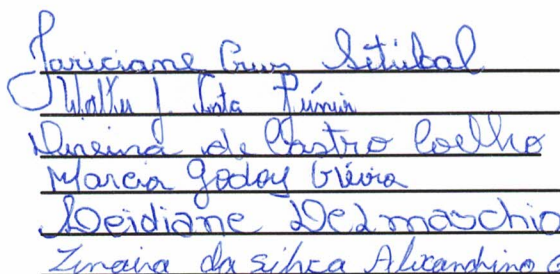 Jariciane Cruz Setubal
Walter J. Júnior
de Castro Coelho
Marcia Godoy Vieira
Deidiane Delmaschio
Zinaira da silva Alixandrino